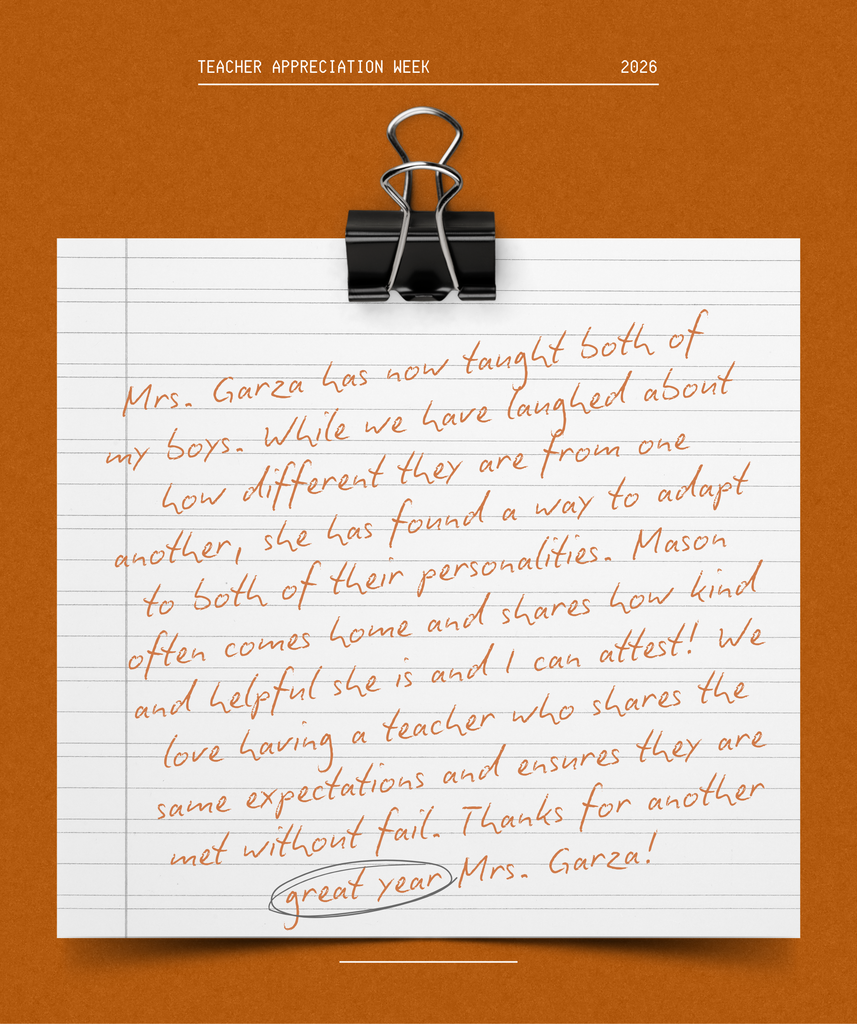 TEACHER APPRECIATION WEEK 2026
Mrs. Garza has now taught both of
my boys. While we have laughed about
how different they are from one
another, she has found a way to adapt
to both of their personalities. Mason
often comes home and shares how kind
and helpful she is and I can attest! We
love having a teacher who shares the
same expectations and ensures they are
met without fail. Thanks for another
great year Mrs. Garza!